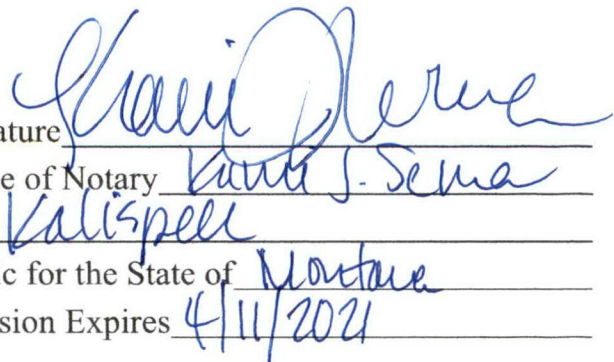 ature
e of Notary J. Serna
Kalispell
c for the State of Montana
sion Expires 4/11/2021